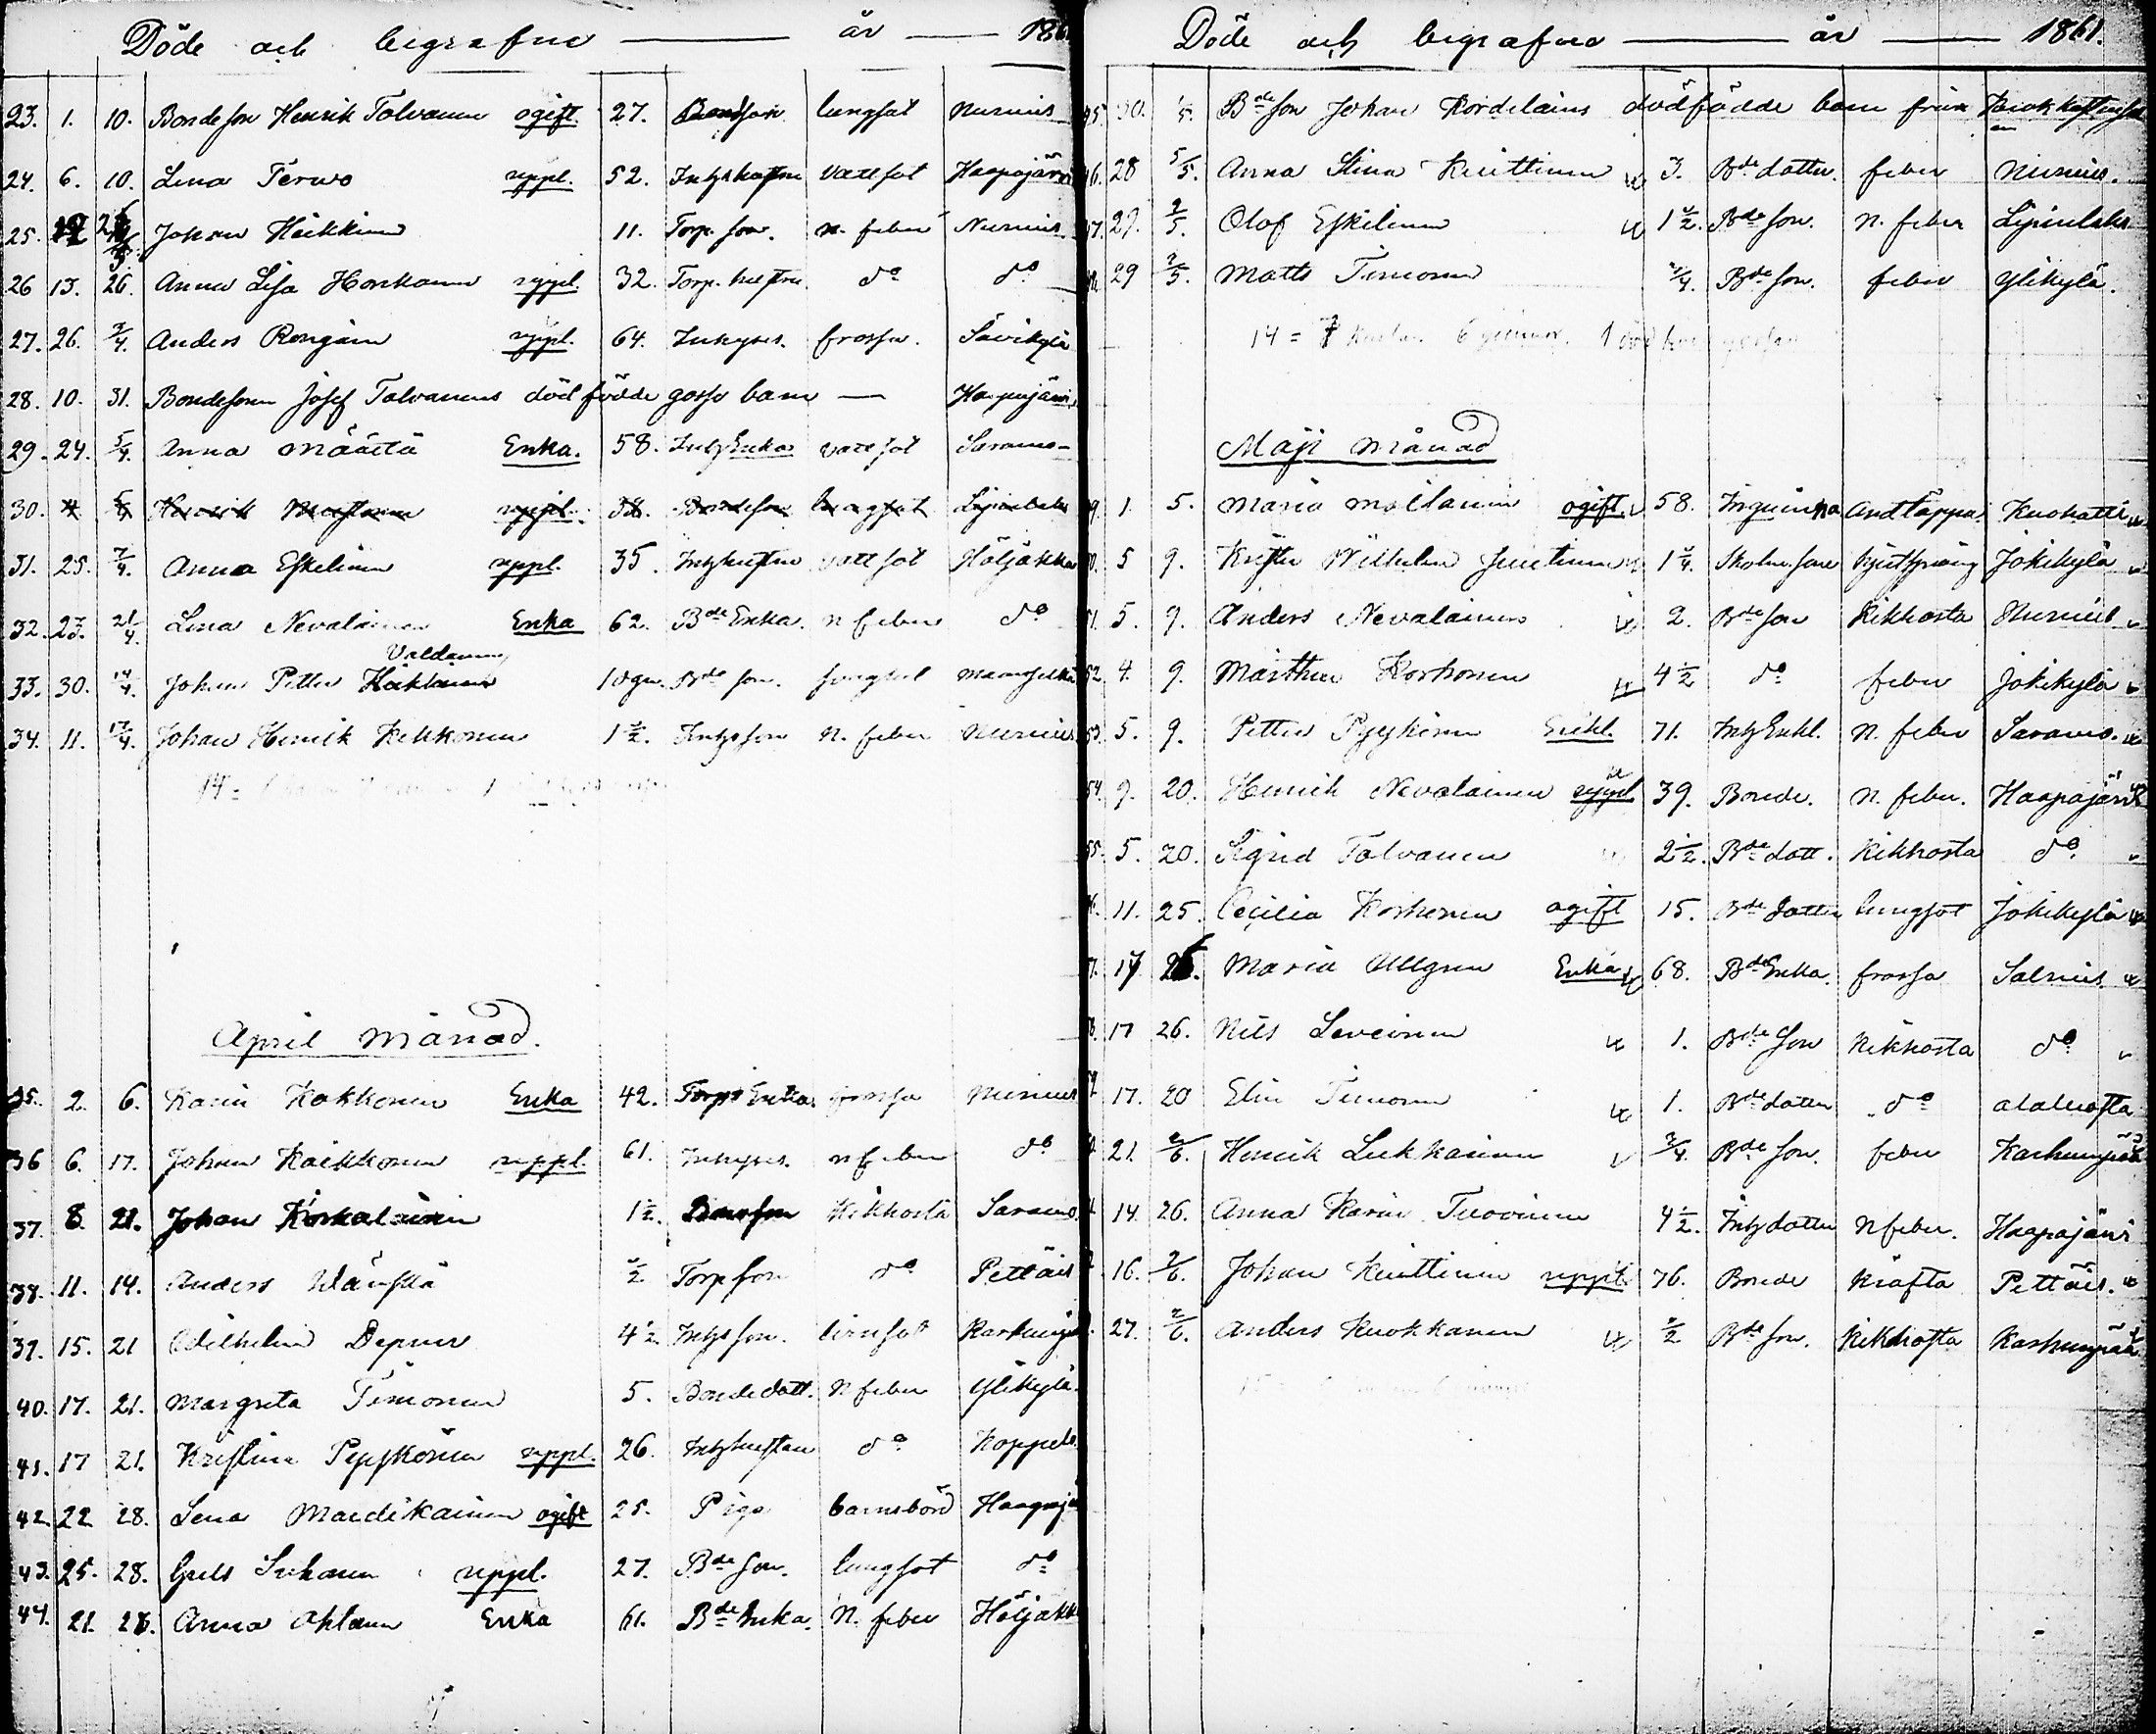 Döde och begrafne år 186
23. 1. 10. Bondeson Henrik Tolvanen ogift 27. Bondeson lungsot Nurmis
24. 6. 10. Lena Terwo uppl. 52. Inhyshustru vattsot Haapajärvi
25. 12 Johan Heikkinen 11. Torp. son. n. feber Nurmis
26 13. 26. Anna Lisa Honkanen uppl. 32. Torp. hustru do do
27. 26. 2/4. Anders Rongain uppl. 64. Inhyses. frossa. Savikylä
28. 10. 31. Bondesonen Josef Tolvanens dödfödde gosse barn — Haapajärvi
29. 24. 5/4. Anna Määttä Enka. 58. Inhys Enka vattsot Saramo
30. 5/4 Henrik Mustonen uppl. 38. Bondeson lungsot Lipinlaks
31. 25. 7/4. Anna Eskelinen uppl. 35. Inhyshustru vattsot Höljäkkä
32. 27. 21/4. Lena Nevalainen Enka 62. Bde Enka. n feber do
Valdemar
33. 30. 14/4. Johan Petter 10 gm. Bde son.
34. 11. 17/4. Johan Henrik Kekkonen 1 1/2. Inhysson n. feber Nurmis
14 =
April månad.
35. 2. 6. Karin Kokkonen Enka 42. Torps Enka. frossa Nurmis
36 6. 17. Johan Kaikkonen uppl. 61. Inhyses. n feber do
37. 8. 21. Johan Korkalainen 1 1/2. Kikhosta Saramo.
38. 11. 14. Anders Wänskä 1/2 Torpson do Pettäis
39. 15. 21 Wilhelm Depner 4 1/2 Inhysson. Karhunpä
40. 17. 21. Margreta Timonen 5. Bondedott. n feber Ylikylä.
41. 17 21. Kristina Pyykönen uppl. 26. Inhyshustru do Koppelo
42. 22 28. Lena Mardikainen ogift 25. Piga barnsbörd Haapajä
43. 25. 28. Suhonen uppl. 27. Bde son. lungsot do
44. 21. 28. Anna Ahlanen Enka 61. Bde Enka. n. feber Höljäkk
Döde och begrafne år 1861.
45. 30. 1/5. Bdeson Johan Kordelains dödfödde barn från
46. 28 5/5. Anna Stina Kuittinen 3. Bde dotter. feber Nurmis.
47. 27. 2/5. Olof Eskelinen 1 1/2. Bde son. n. feber Lipinlaks
29 2/5. Matts Timonen 3/4. Bde son. feber Ylikylä.
14 = 7 6 qvinnor. 1
Maji månad
49. 1. 5. Maria Moilanen ogift 58. andtäppa Kuohatti
50. 5 9. Wilhelm Juutinen 1 1/4. Jokikylä
51. 5. 9. Anders Nevalainen 2. Bde son Kikhosta Nurmis
52 4. 9. Mårthen Korhonen 4 1/2 do feber Jokikylä
53. 5. 9. Petter Pyykönen Enkl. 71. Inhys Enkl. n. feber Saramo.
54. 9. 20. Henrik Nevalainen uppl 39. Bonde. n. feber. Haapajärvi
55. 5. 20. Sigrid Tolvanen 2 1/2. Bde dott. Kikhosta do
56. 11. 25. Cecilia Korhonen ogift 15. Bde dotter lungsot Jokikylä
57. 17 26. Maria Ullgren Enka 68. Bde Enka. frossa Salmis.
58. 17 26. Nils Leveinen 1. Bde son Kikhosta do
59 17. 20 Elin Timonen 1. Bde dotter do
21. 2/6. Henrik Lukkarinen 3/4. Bde son. feber Karhunpää
14. 26. Anna Karin Tuovinen 4 1/2. Inhys dotter n feber. Haapajärvi
16. 2/6. Johan Kuittinen uppl 76. Bonde kräfta Pettäis.
27. 2/6. Anders Kuokkanen 1/2 Bde son. Kikhosta Karhunpää